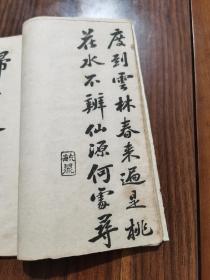 度到雲林春来遍是桃
花水不辨仙源何處尋